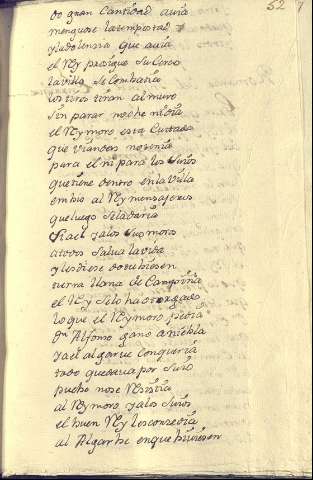 52
do gran Cantidad auia
menguose la tempestad
y la dolencia que auia
el Rey prosigue su Cerco
la villa se Combatia
los tiros tiran al muro
sin parar noche ni dia
el Rey moro esta Cuitado
que viandas no tenia
para el ni para los suios
que tiene dentro en la villa
embio al Rey mensajeros
que luego se la daria
si a el y a los sus moros
a todos salua la vida
y les diese do viuiesen
tierra llana de Campiña
el Rey se lo ha otorgado
lo que el Rey moro pedia
Dn Alfonso gano a niebla
y a el algarue Conqueria
todo quedaria por suio
pues no se
al Rey moro y a los suios
el buen Rey les concedia
al Algarbe en que biuiesen